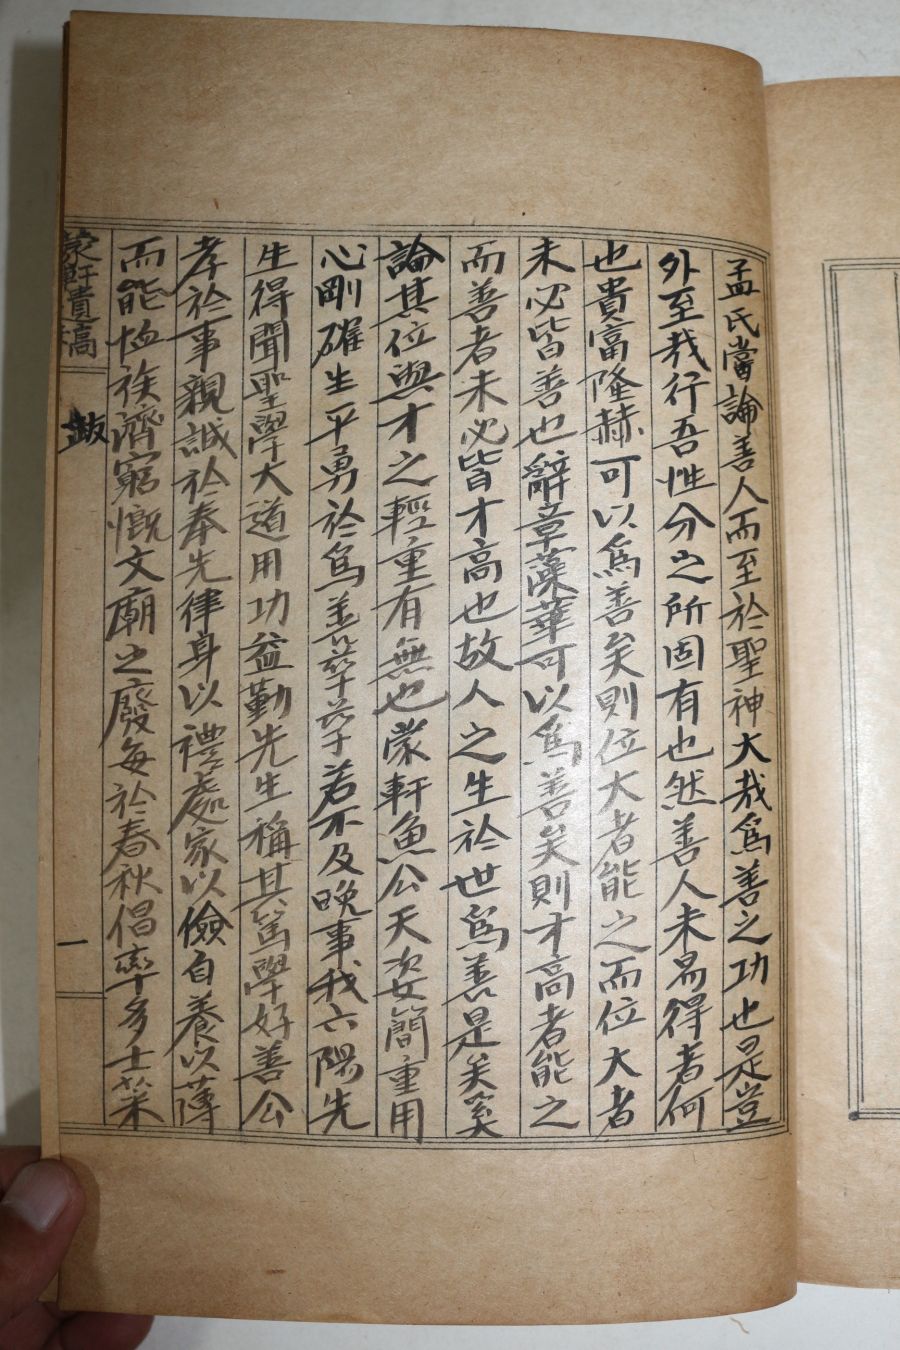 孟氏嘗論善人而至於聖神大哉爲善之功也是豈
外至哉行吾性分之所固有也然善人未易得者何
也貴富隆赫可以爲善矣則位大者能之而位大者
未必皆善也辭章藻華可以爲善矣則才高者能之
而善者未必皆才高也故人之生於世爲善是矣奚
論其位與才之輕重有無也蒙軒魚公天姿簡重用
心剛確生平勇於爲善孶孶若不及晩事我六陽先
生得聞聖學大道用功益勤先生稱其篤學好善公
孝於事親誠於奉先律身以禮處家以儉自養以薄
而能恤族濟窮慨文廟之廢每於春秋倡率多士菜
蒙軒遺稿
跋
一